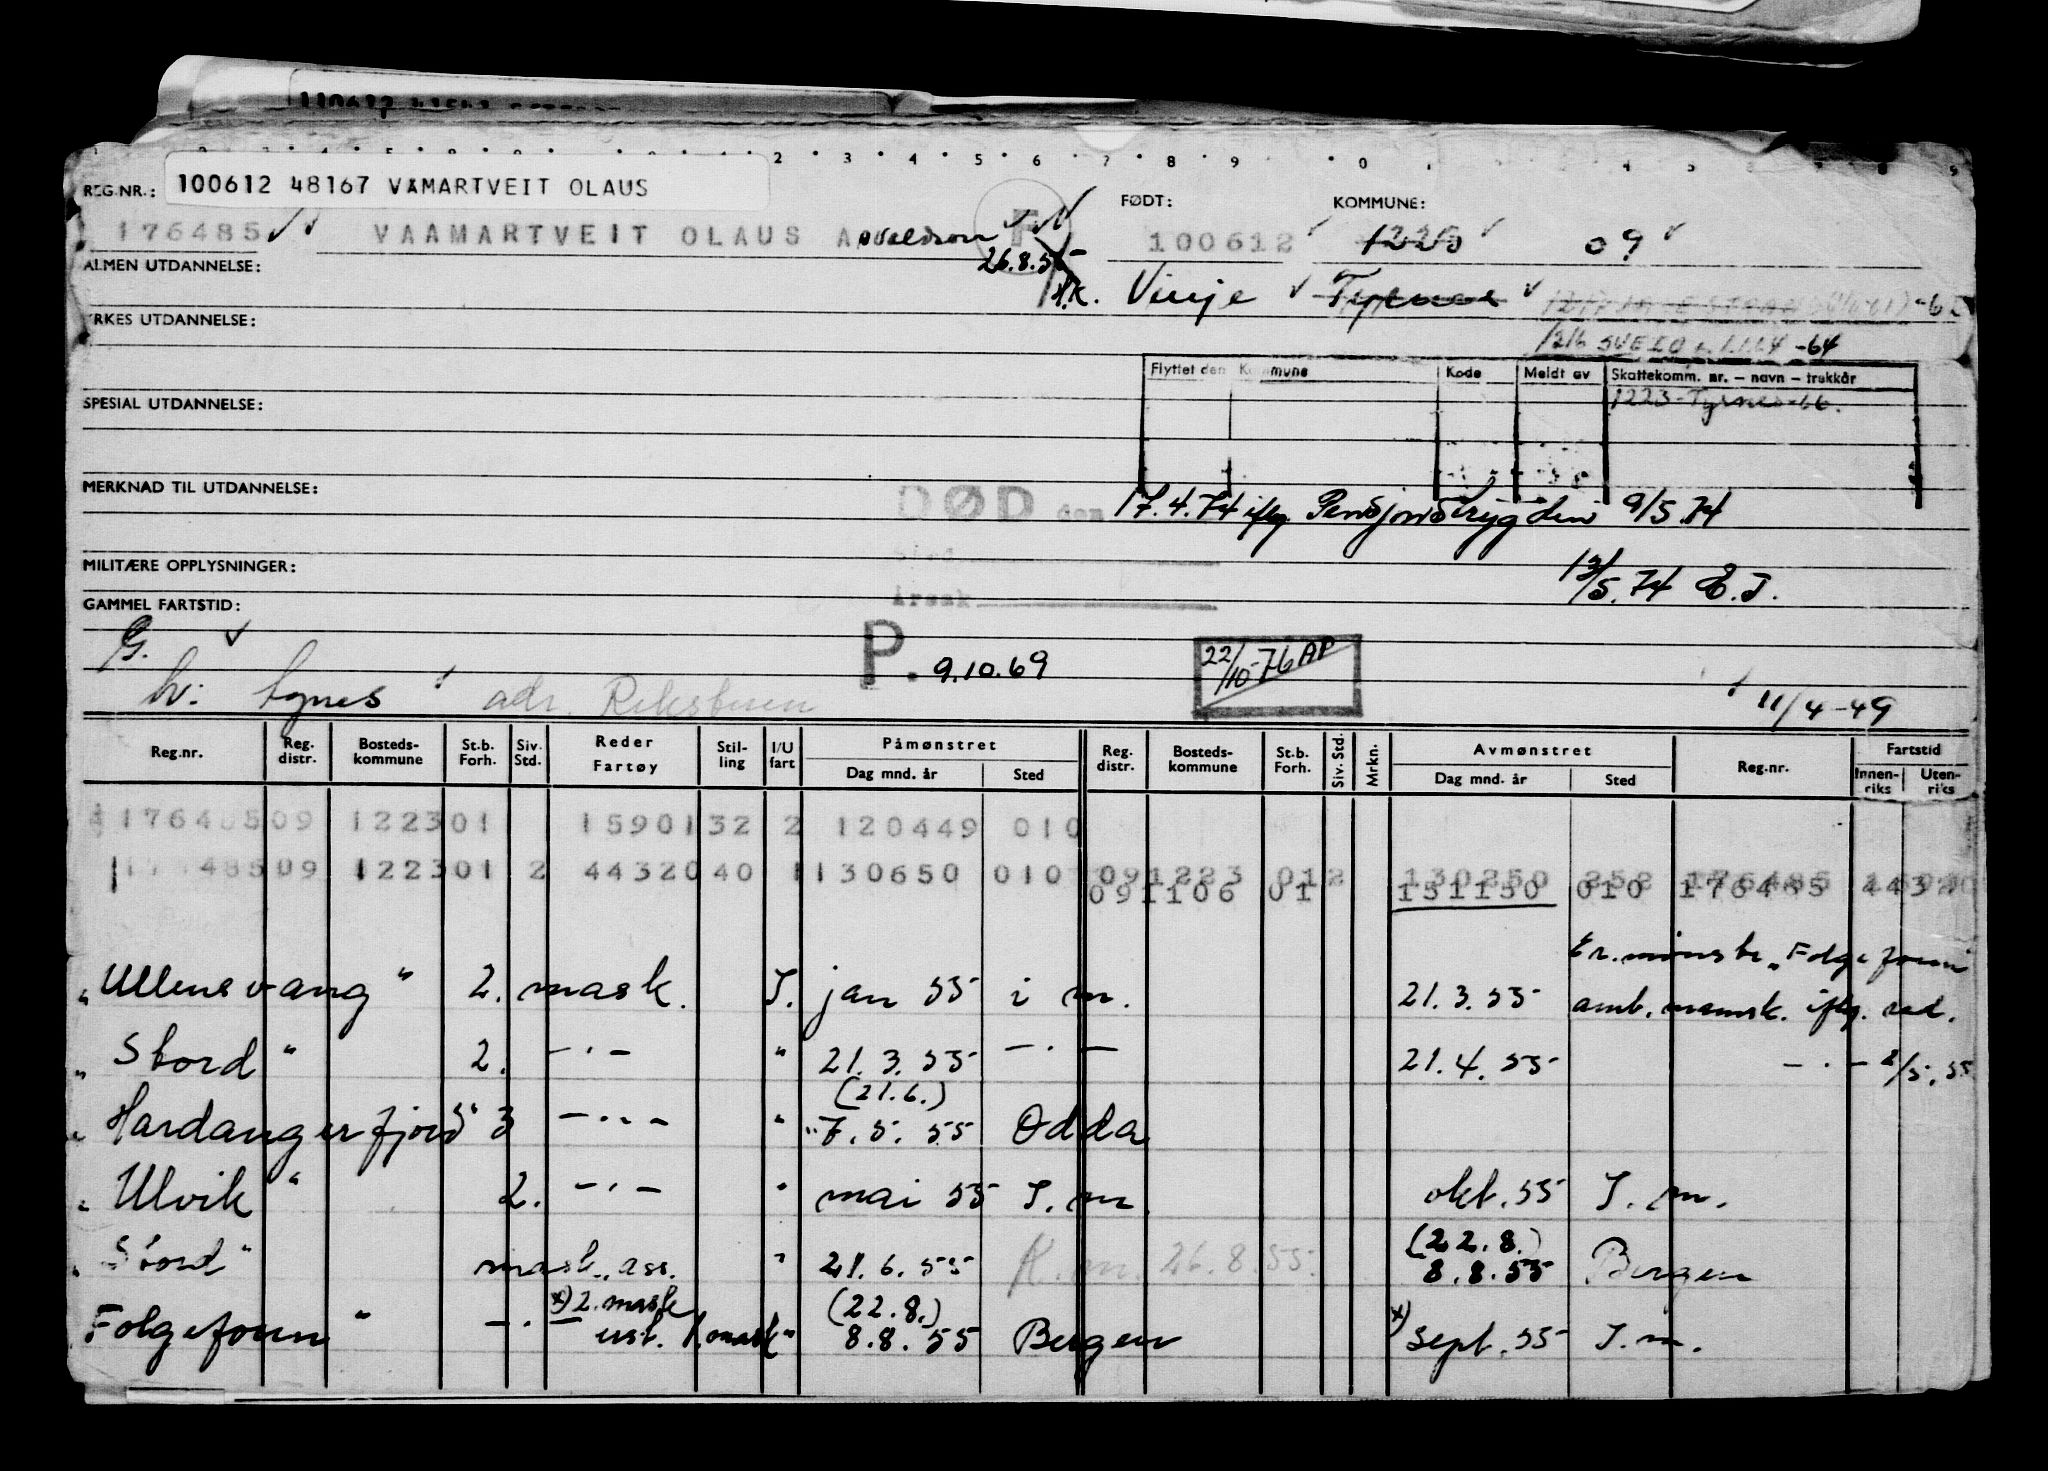 REG.NR.: 100612 48167 VAMARTVEIT OLAUS
FØDT: KOMMUNE:
176485 VAAMARTVEIT OLAUS A 100612 09
26.8.55
ALMEN UTDANNELSE:
H.K. Vinje
YRKES UTDANNELSE:
-64
Flyttet den Kommune Kode Meldt av Skattekomm. nr. – navn – trekkår
1223-Tysnes-66.
SPESIAL UTDANNELSE:
MERKNAD TIL UTDANNELSE:
DØD den 17.4.74 iflg. Pensjonstrygden 9/5.74
Sted
MILITÆRE OPPLYSNINGER:
13/5.74 E.J.
Årsak
GAMMEL FARTSTID:
G.
P. 9.10.69 22/10-76 AP
hv: Agnes adr. Reksteren 11/4-49
Reg.nr. Reg. distr. Bosteds-kommune St.b. Forh. Siv. Std. Reder Fartøy Stil-ling I/U fart Påmønstret Dag mnd. år Sted Reg. distr. Bosteds-kommune St.b. Forh. Siv. Std. Mrkn. Avmønstret Dag mnd. år Sted Reg.nr. Fartstid Innen-riks Uten-riks
176485 09 1223 01 15901 32 2 120449 010
09 1223 01 2 44320 40 1 130650 010 091223 012 130250 252 176485
091106 01 151150 010 176485 4432
Er. mønstr. „Folgefonn"
„Ullensvang" 2. mask. I. jan 55 i m. 21.3.55 amb. mannsk. iflg. red.
„Stord" 2. —·— " 21.3.55 —·— 21.4.55 —·— 2/5.55
(21.6.)
„Hardangerfjord" 3 —··— " 7.5.55 Odda
„Ulvik" 2. —·— " mai 55 I.m. okt. 55 I.m.
(22.8.)
„Stord" mask. ass. " 21.6.55 K.m. 26.8.55. 8.8.55 Bergen
x) 2. mask (22.8.) x)
Folgefonn" —·— 8.8.55 Bergen sept. 55 I.m.